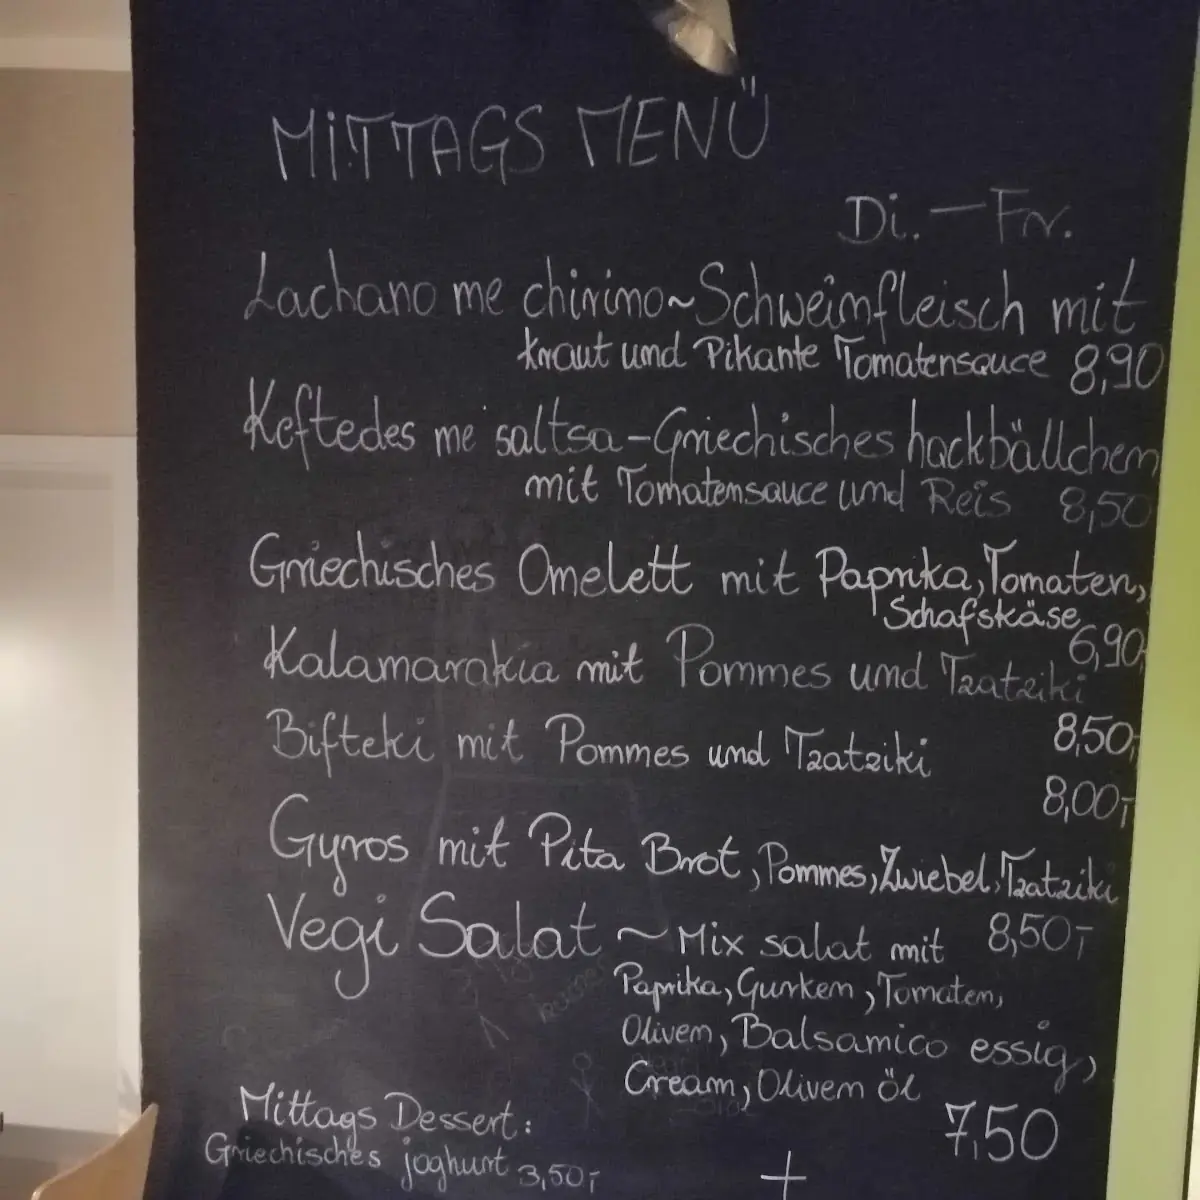 MITTAGS MENÜ
Di. – Fr.
Lachano me chirino ~ Schweinfleisch mit
kraut und Pikante Tomatensauce 8,90
Keftedes me saltsa – Griechisches hackbällchen
mit Tomatensauce und Reis 8,50
Griechisches Omelett mit Paprika, Tomaten,
Schafskäse
6,90,-
Kalamarakia mit Pommes und Tzatziki
8,50,-
Bifteki mit Pommes und Tzatziki
8,00,-
Gyros mit Pita Brot, Pommes, Zwiebel, Tzatziki
8,50,-
Vegi Salat ~ Mix salat mit
Paprika, Gurken, Tomaten,
Oliven, Balsamico essig,
Cream, Oliven öl
7,50
Mittags Dessert:
Griechisches joghurt 3,50,-
+